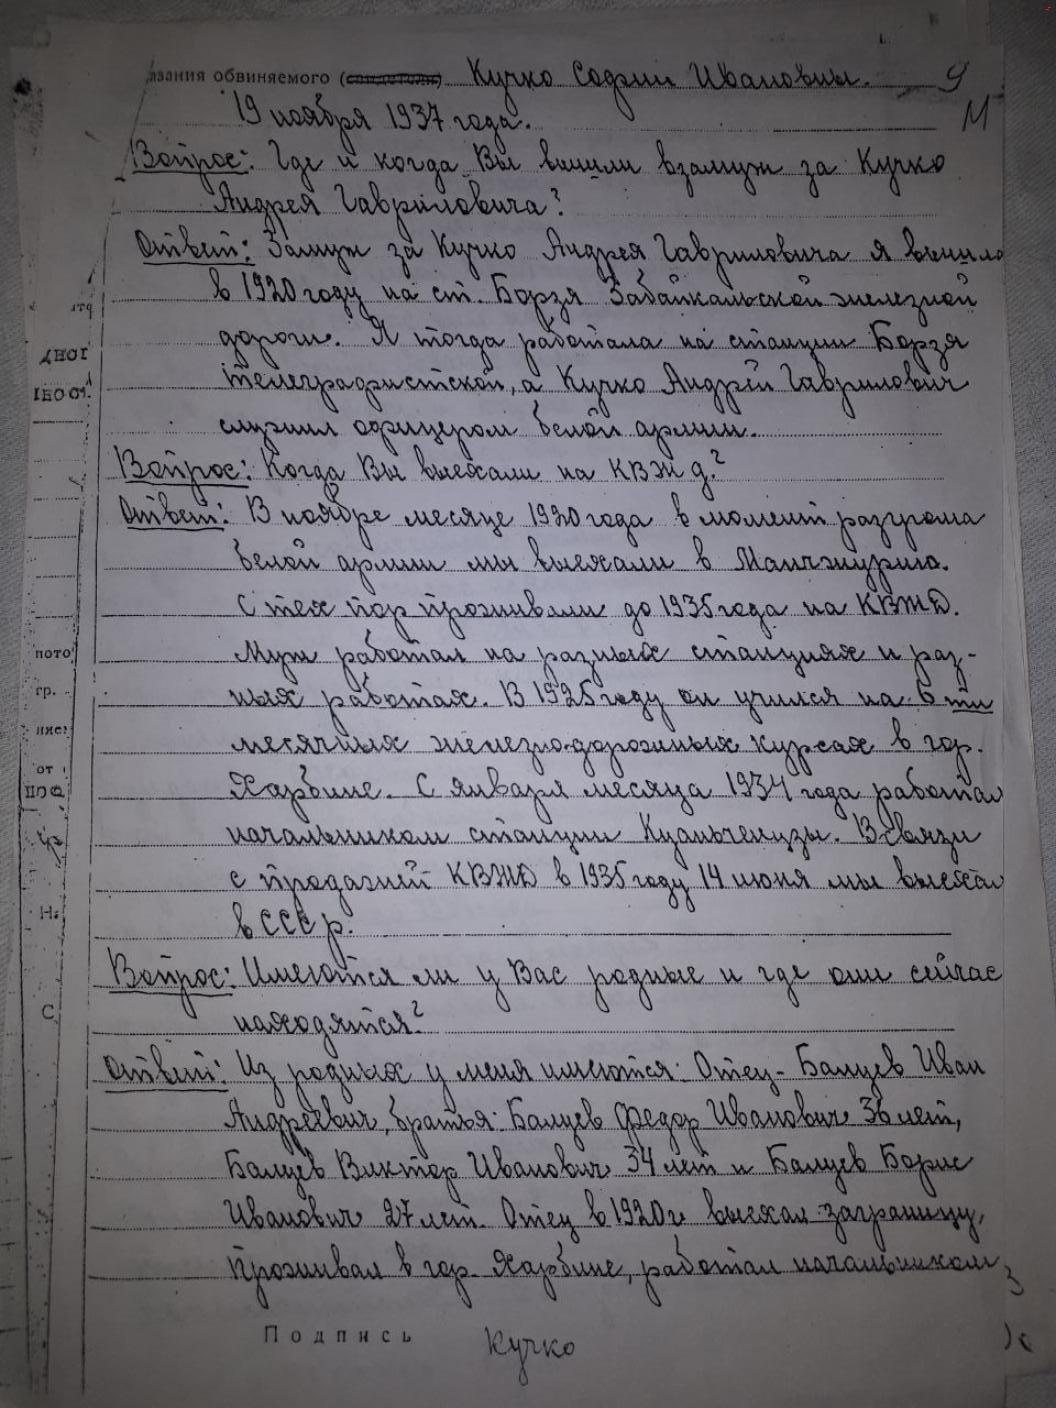 азания обвиняемого (свидетеля) Кучко Софии Ивановны. 9
19 ноября 1937 года. М
Вопрос: Где и когда Вы вышли взамуж за Кучко
Андрея Гавриловича?
Ответ: Замуж за Кучко Андрея Гавриловича я вышла
в 1920 году на ст. Борзя Забайкальской железной
дороги. Я тогда работала на станции Борзя
телеграфистской, а Кучко Андрей Гаврилович
служил офицером белой армии.
Вопрос: Когда Вы выехали на КВЖд?
Ответ: В ноябре месяце 1920 года в момент разгрома
белой армии мы выехали в Манчжурию.
С тех пор проживали до 1935 года на КВЖД.
Муж работал на разных станциях и раз-
ных работах. В 1925 году он учился на 6 ти
месячных железно-дорожных курсах в гор.
Харбине. С января месяца 1934 года работал
начальником станции Куаньченцзы. В связи
с продажей КВЖД в 1935 году 14 июня мы выехал
в СССР.
Вопрос: Имеются ли у Вас родные и где они сейчас
находятся?
Ответ: Из родных у меня имеются: Отец - Балуев Иван
Андреевич, братья: Балуев Федор Иванович 36 лет,
Балуев Виктор Иванович 34 лет и Балуев Борис
Иванович 27 лет. Отец в 1920 г выехал заграницу,
проживал в гор. Харбине, работал начальником
Подпись Кучко
пото
гр.
от
Н.
С.